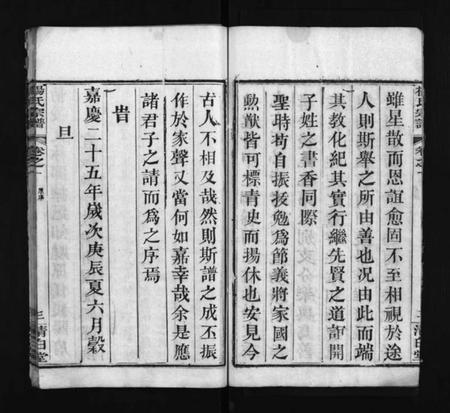 楊氏宗譜
卷之一
雖星散而恩誼愈固不至相視於途
人則斯舉之所由善也况由此而端
其教化紀其實行繼先賢之道誼開
子姓之書香同際
聖時苟自振拔勉為節義將家國之
勲猷皆可標青史而揚休也安見今
三 清白堂
古人不相及哉然則斯譜之成丕振
作於家聲又當何如嘉幸哉余是應
諸君子之請而為之序焉
旹
嘉慶二十五年歲次庚辰夏六月穀
旦
楊氏宗譜
卷之一
三 清白堂